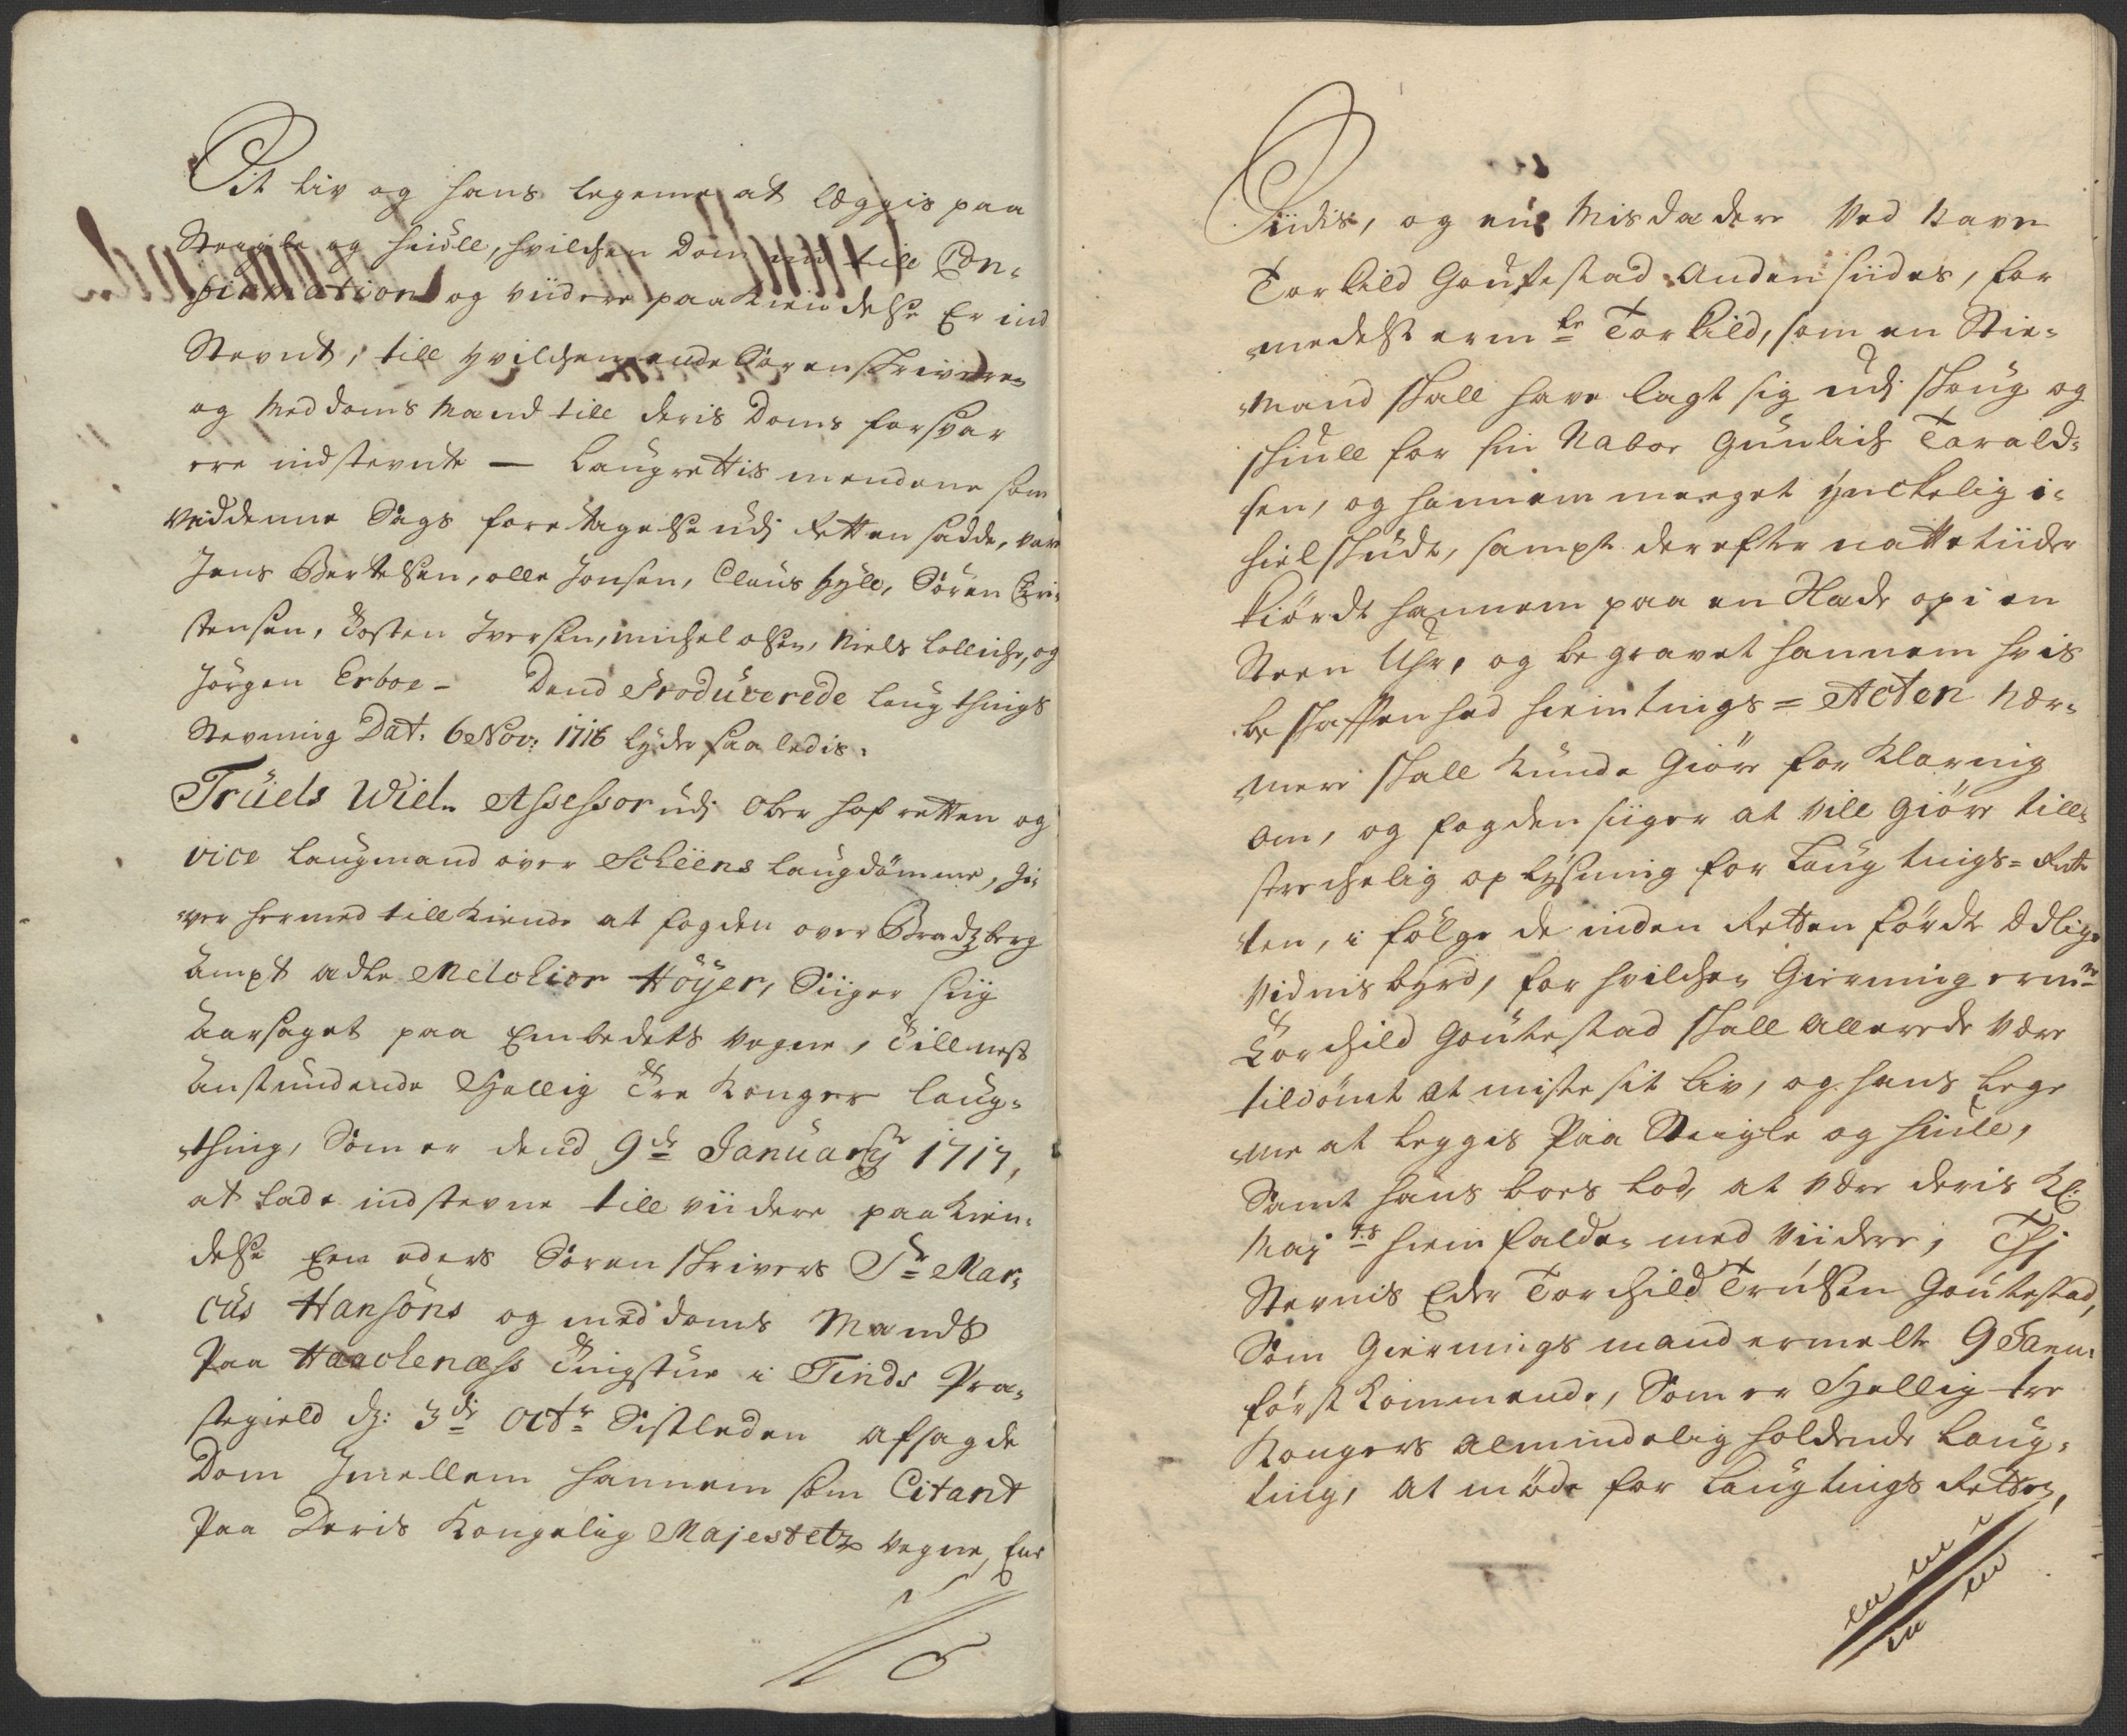 Sit liv og hans legeme at læggis paa
Steigle og hiull, hvilchen Dom nu till Con-
firmation og viidere paakiendelse Er ind
Stevnt, till hvilchen ende Sorenskriveren
og Meddoms Mænd till deris Doms forsvar
ere indstevnte — Laugrettis mændene som
ved denne Sags foretagelse udj Retten sadde, vare
Jens Bertelsen, olle Jonsen, Claus Hyll, Sören Chri-
stensen, Tosten Iversen, Michel olsen, Niels Lolliche, og
Jörgen Erboe - Dend Producerede laugthings
Stevning Dat. 6 Nov: 1716 lyder saaledis.
Truels Wiel Assessor udj Ober hof retten og
vice laugmand over Scheens laugdömme, Gi-
ver hermed tillkiende at fogden over Bradzberg
ampt adle Melchior Höyer, Siiger sig
aarsaget paa Embedets vegne, Till nest
anstundende Hellig Tre Konger laug-
thing, Som er dend 9de Januarij 1717,
at lade indstevne till viidere paakien-
delse Een eders Sorenskrivers Sr Mar-
cus Hansöns og meddoms Mænds
Paa Haachenæss Tingstue i Tinds Præ-
stegield d: 3die Octr Sistleden afsagde
Dom Imellem hannem som Citant
Paa Deris Kongelig Majestetz vegne, Een
Siides, og en Misdædere ved Navn
Torkild Goutestad Anden siides, for
medelst ermte Torkild, som en Stie-
Mand skall have lagt sig udj skoug og
skiull for sin Naboe Gunlich Tarald-
sen, og hannem meeget ynckelig i-
hielskudt, sampt derefter nattetiider
kiördt hannem paa en Slæde op i en
Steen Uhr, og begravet hannem hvis
beskaffenhed hiemtings = Acten nær-
mere skall kunde Giöre forklaring
om, og fogden siiger at vill Giöre till-
strechelig oplysning for Laugtings = Ret-
ten, i fölge de inden Retten förde Edlige
Vidnisbyrd, for hvilchen Gierning ermte
Torchild Goutestad skall allerede være
tildömt at miste sit liv, og hans Lege
me at leggis Paa Steigle og hiule,
Samt hans boes lod, at være deris Kl:
Mayts hiemfalden med viidere; Thj
Stevnis Eder Torchild Trulsen Goutestad,
Som Gierningsmand ermelte 9 Janu:
först kommende, Som er Hellig tre
Kongers Almindelig holdende Laug-
ting, at möde for Laugtings Retten,